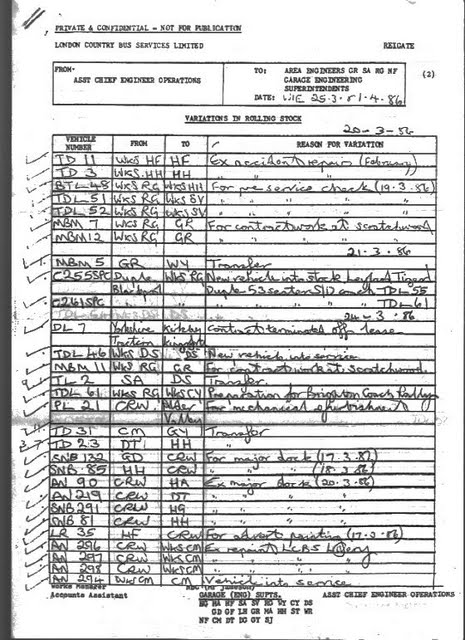 PRIVATE & CONFIDENTIAL - NOT FOR PUBLICATION
LONDON COUNTRY BUS SERVICES LIMITED REIGATE
FROM- TO: AREA ENGINEERS GR SA RG NF (2)
ASST CHIEF ENGINEER OPERATIONS GARAGE ENGINEERING
SUPERINTENDENTS
DATE: W/E 25-3. 81-4.86
VARIATIONS IN ROLLING STOCK
20-3-86
VEHICLE NUMBER FROM TO REASON FOR VARIATION
TD 11 WKS HF HF Ex accident repairs (February)
TD 3 WKS HH HH " "
BTL 48 WKS RG WKS HH For pre service check (19.3.86)
TDL 51 WKS RG WKS SV " "
TDL 52 WKS RG WKS SV " "
MBM 7 WKS RG GR For contract work at scratchwood
MBM 12 WKS RG GR " "
21-3-86
MBM 5 GR WY Transfer
C255SPC Duple WKS RG New vehicle into stock Leyland Tiger
Blackpool Duple 53 seater S/D coach TDL 55
C261SPC " " TDL 61
24-3-86
DL 7 Yorkshire Kirkby Contract terminated off lease
Traction
TDL 46 WKS DS DS New vehicle into service
MBM 11 WKS RG GR For contract work at scratchwood
TL 2 SA DS Transfer
TDL 61 WKS RG WKS CY Preparation for Brighton Coach Rally
PL 21 CRW Alder For mechanical refurbishment
Valley
TD 31 CM GY Transfer
TD 23 DT HH "
SNB 132 GD CRW For major dock (17.3.86)
SNB 85 HH CRW " " (18.3.86)
AN 90 CRW HA Ex major dock (20.3.86)
AN 219 CRW DT " "
SNB 291 CRW HG " "
SNB 81 CRW HH " "
LR 35 HF CRW For advert painting (17.3.86)
AN 296 CRW WKS CM Ex repaint LCBS Livery
AN 297 CRW WKS CM " "
AN 298 CRW WKS CM " "
AN 294 WKS CM CM Vehicle into service
Works Manager
Accounts Assistant GARAGE (ENG) SUPTS. ASST CHIEF ENGINEER OPERATIONS
HG HA HF SA SV RG WY CY DS
GD GF LH GR MA HH ST WR
NF CM DT DG GY SJ